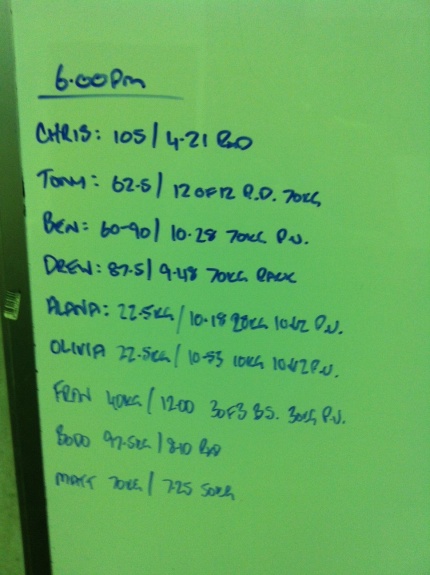 6.00pm
CHRIS: 105 / 4.21 RXD
TONY: 62.5 / 12 OF 12 P.D. 70KG
BEN: 60-90 / 10.28 70KG P.U.
DREW: 87.5 / 9.48 70KG RACK
ALANA: 22.5KG / 10.18 20KG P.U.
OLIVIA 22.5KG / 10.53 10KG P.U.
FRAN 40KG / 12.00 3 OF 3 B.S. 30KG P.U.
BODO 97.5KG / 8.10
MATT 70KG / 7.25 50KG